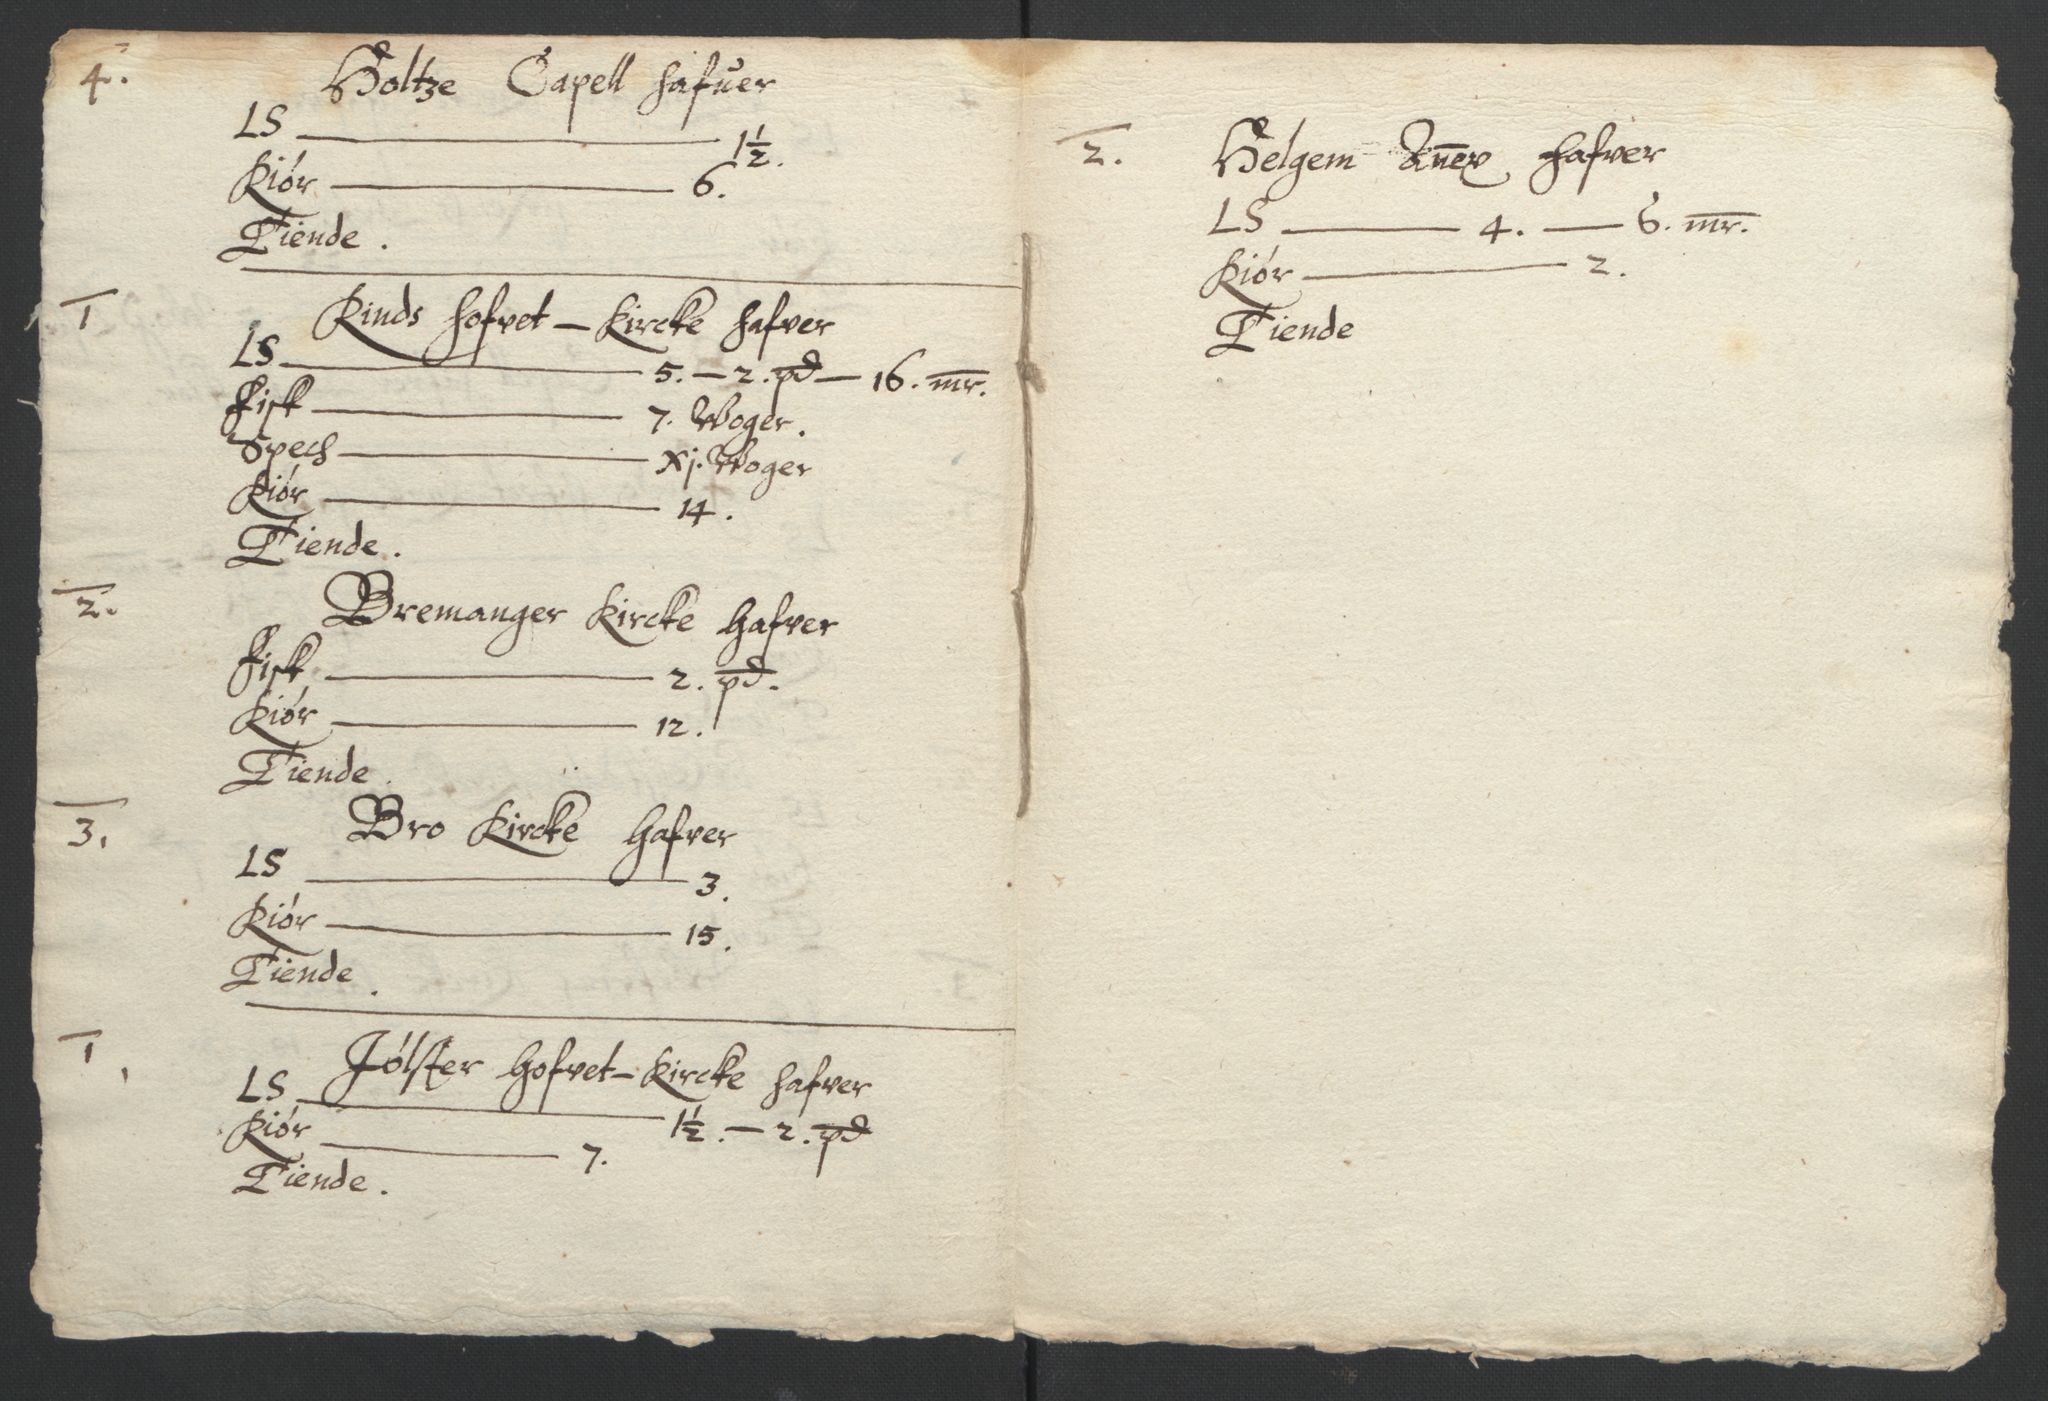 4. Holtze Capell hafuer
LS 1½.
Kiör 6.
Tiende.
1 Kinds hofvet-Kircke hafver
LS 5. — 2. pd — 16. mr.
Fisk 7. Woger.
Spech Xj. Woger
Kiör 14.
Tiende.
2. Bremanger Kircke hafver
Fisk 2. pd.
Kiör 12.
Tiende.
3. Bro Kircke hafver
LS 3.
Kiör 15.
Tiende.
1. Jölster hofvet-Kircke hafver
LS 1½. — 2. pd
Kiör 7.
Tiende.
2. Helgem Anex hafver
LS 4. — 6. mr.
Kiör 2.
Tiende